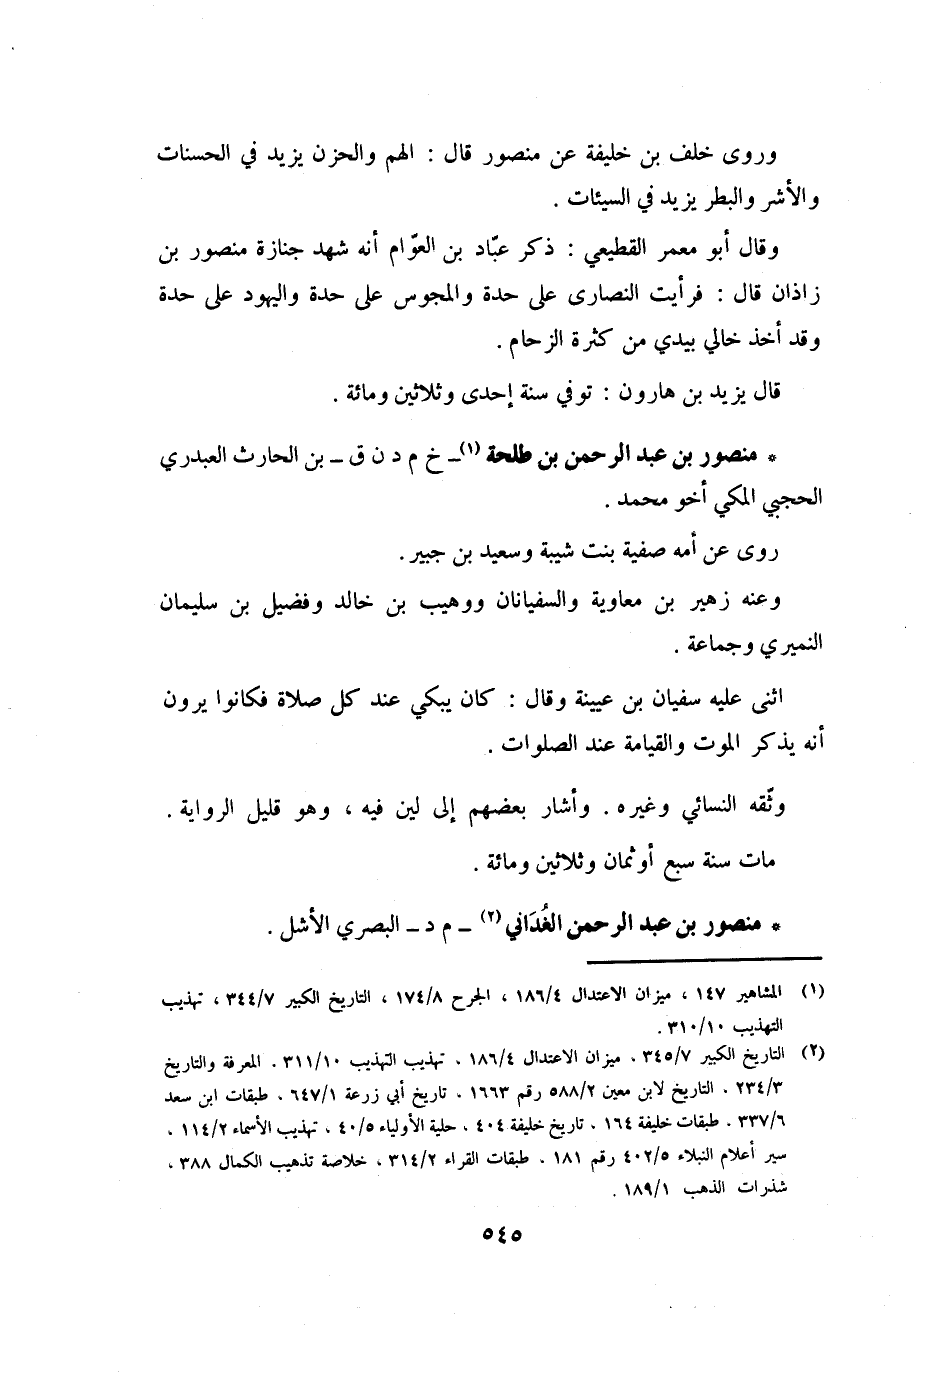 وروى خلف بن خليفة عن منصور قال : الهم والحزن يزيد في الحسنات
والأشر والبطر يزيد في السيئات .
وقال أبو معمر القطيعي : ذكر عبّاد بن العوّام أنه شهد جنازة منصور بن
زاذان قال : فرأيت النصارى على حدة والمجوس على حدة واليهود على حدة
وقد أخذ خالي بيدي من كثرة الزحام .
قال يزيد بن هارون : توفي سنة إحدى وثلاثين ومائة .
* منصور بن عبد الرحمن بن طلحة (١) ـ خ م د ن ق ـ بن الحارث العبدري
الحجبي المكي أخو محمد .
روى عن أمه صفية بنت شيبة وسعيد بن جبير .
وعنه زهير بن معاوية والسفيانان ووهيب بن خالد وفضيل بن سليمان
النميري وجماعة .
اثنى عليه سفيان بن عيينة وقال : كان يبكي عند كل صلاة فكانوا يرون
أنه يذكر الموت والقيامة عند الصلوات .
وثّقه النسائي وغيره . وأشار بعضهم إلى لين فيه ، وهو قليل الرواية .
مات سنة سبع أوثمان وثلاثين ومائة .
* منصور بن عبد الرحمن الغُدَاني (٢) ـ م د ـ البصري الأشل .
(١) المشاهير ١٤٧ ، ميزان الاعتدال ١٨٦/٤ ، الجرح ١٧٤/٨ ، التاريخ الكبير ٣٤٤/٧ ، تهذيب
التهذيب ٣١٠/١٠ .
(٢) التاريخ الكبير ٣٤٥/٧ . ميزان الاعتدال ١٨٦/٤ . تهذيب التهذيب ٣١١/١٠ . المعرفة والتاريخ
٢٣٤/٣ . التاريخ لابن معين ٥٨٨/٢ رقم ١٦٦٣ . تاريخ أبي زرعة ٦٤٧/١ . طبقات ابن سعد
٣٣٧/٦ . طبقات خليفة ١٦٤ . تاريخ خليفة ٤٠٤ . حلية الأولياء ٤٠/٥ . تهذيب الأسماء ١١٤/٢ ،
سير أعلام النبلاء ٤٠٢/٥ رقم ١٨١ . طبقات القراء ٣١٤/٢ ، خلاصة تذهيب الكمال ٣٨٨ ،
شذرات الذهب ١٨٩/١ .
٥٤٥